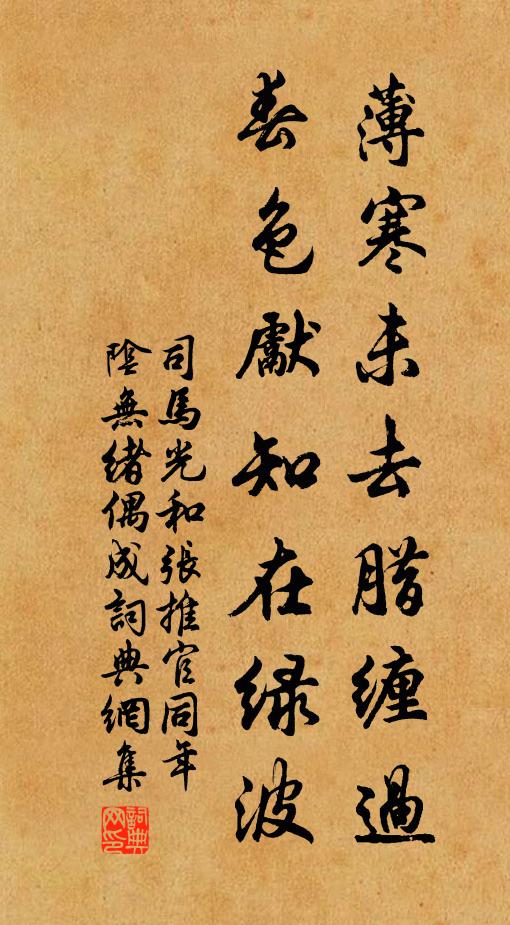 薄寒未去腊缠過
春色獻知在绿波
司馬光和張推官同年
陰無緒偶成詞典網集
詞典网印